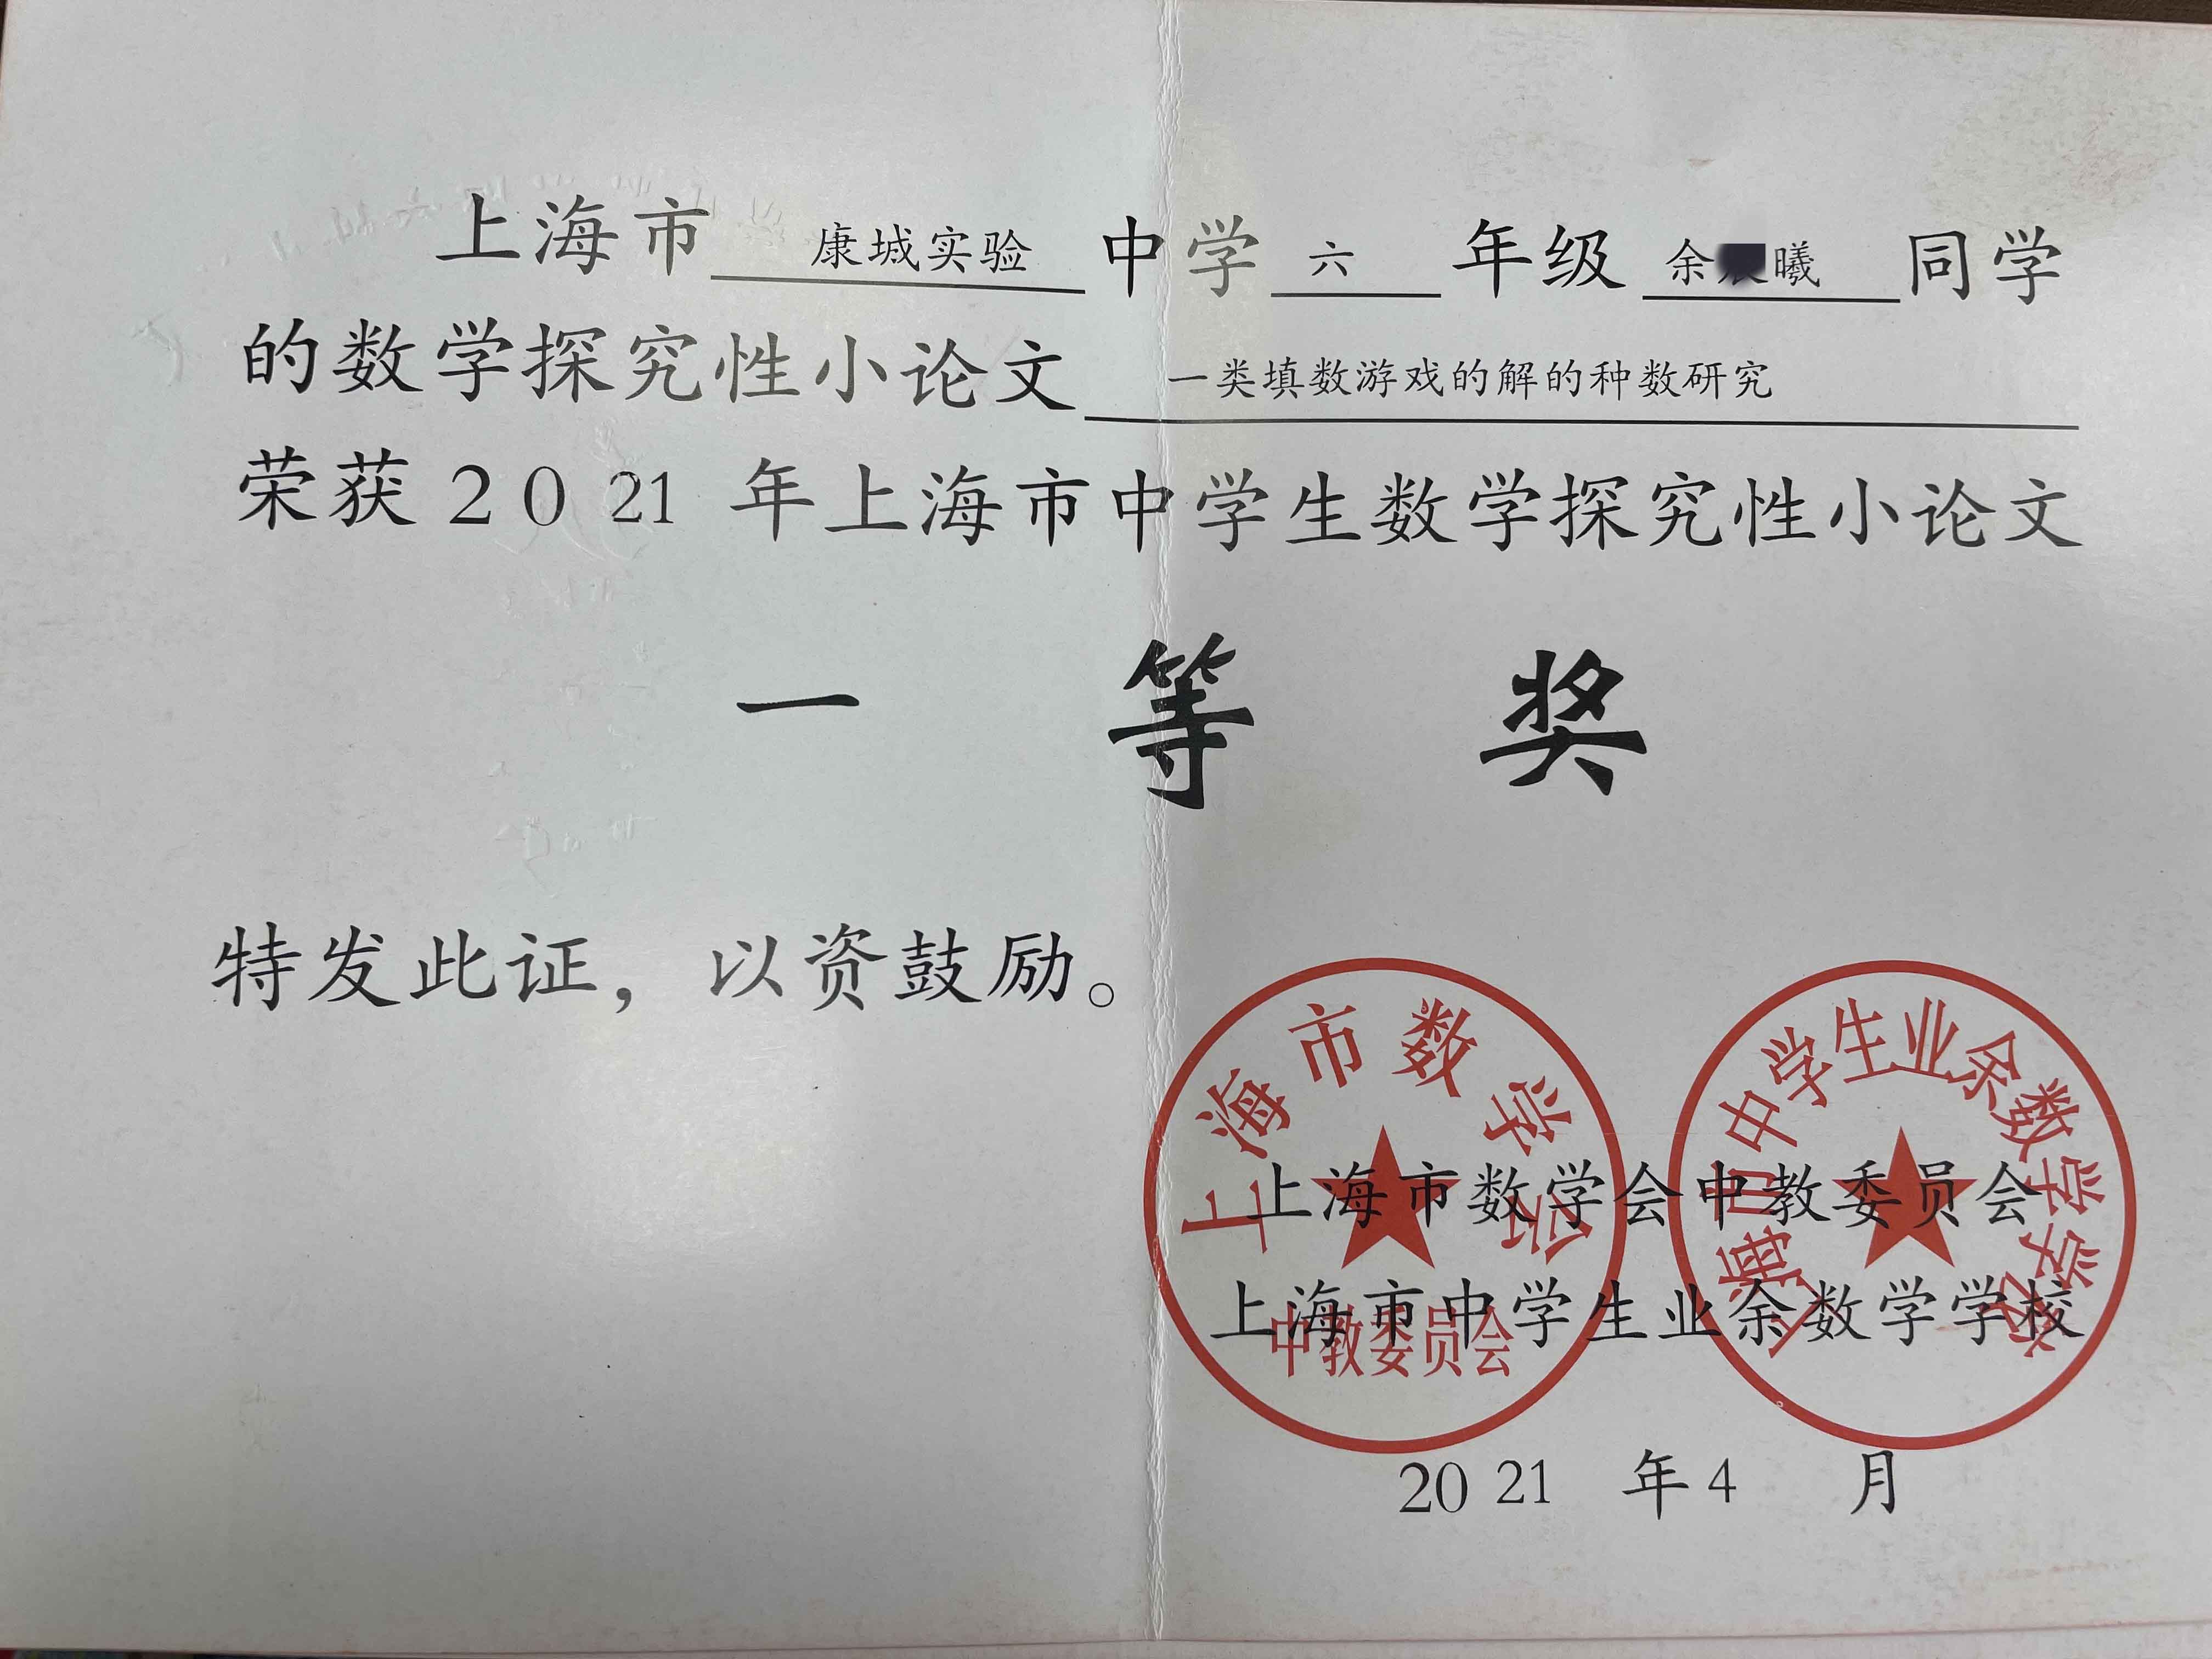 上海市 康城实验 中学 六 年级 余 曦 同学
的数学探究性小论文 一类填数游戏的解的种数研究
荣获2021年上海市中学生数学探究性小论文
一等奖
特发此证，以资鼓励。
上海市数学会
中教委员会
上海市中学生业余数学学校
上海市数学会中教委员会
上海市中学生业余数学学校
2021年4月